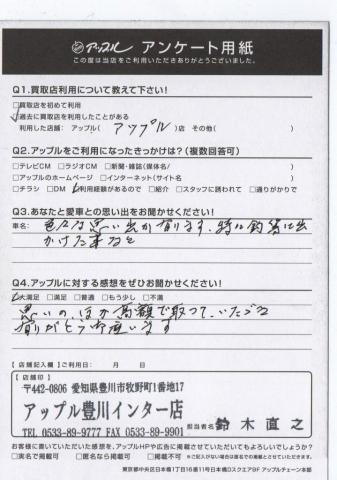 アップル アンケート用紙
この度は当店をご利用いただきありがとうございました。
Q1.買取店利用について教えて下さい!
□買取店を初めて利用
□過去に買取店を利用したことがある
利用した店舗: アップル( アップル )店 その他( )
Q2.アップルをご利用になったきっかけは?(複数回答可)
□テレビCM □ラジオCM □新聞・雑誌(媒体名/ )
□アップルのホームページ □インターネット(サイト名 )
□チラシ □DM □利用経験があるので □紹介 □スタッフに誘われて □通りがかりで
Q3.あなたと愛車との思い出をお聞かせください!
車名: 色々な思い出が有ります、特に釣等に出
かけた事など
Q4.アップルに対する感想をぜひお聞かせください!
□大満足 □満足 □普通 □もう少し □不満
思いのほか高額で取って、いただき
有りがとう御座います
【 店舗記入欄 】ご利用日: 月 日
【 店舗印 】
〒442-0806 愛知県豊川市牧野町1番地17
アップル豊川インター店
TEL 0533-89-9777 FAX 0533-89-9901
担当者名 鈴木直之
お客様に書いていただいた感想を、アップルHPや広告に掲載させていただいてもよろしいでしょうか?
□実名で掲載可 □匿名なら掲載可 □掲載不可 ※ご記入がない場合は匿名にて掲載とさせていただきます。
東京都中央区日本橋1丁目16番11号日本橋Dスクエア9F アップルチェーン本部